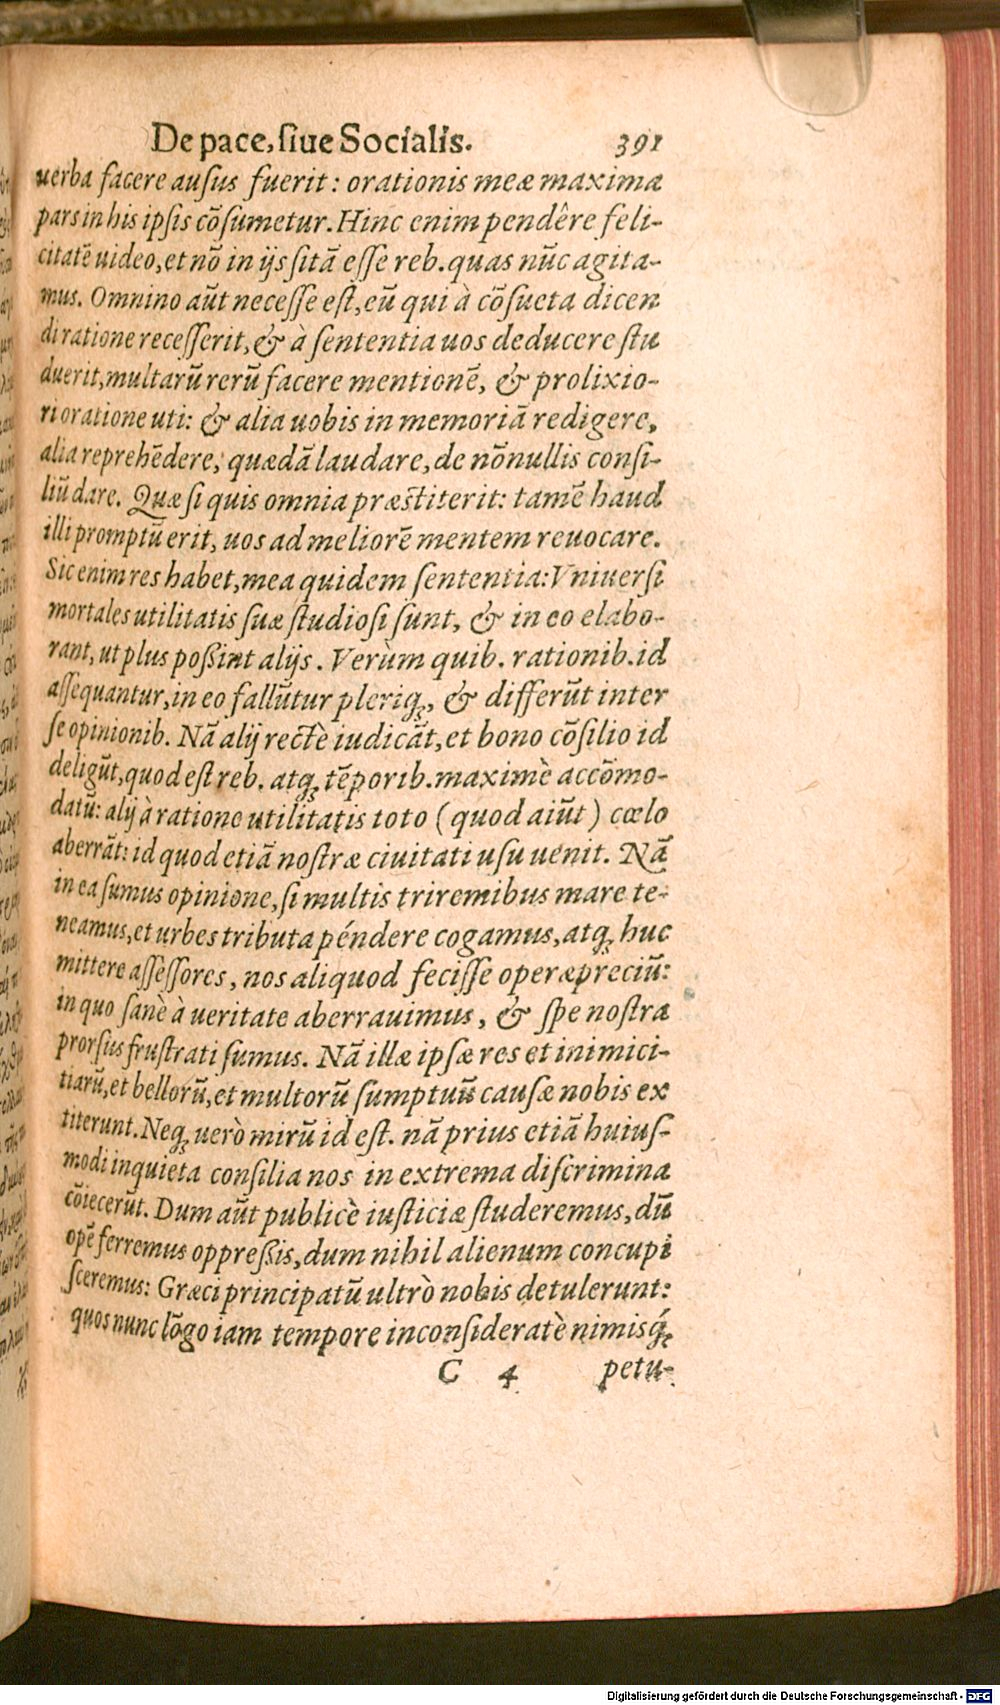 De pace, ſiue Socialis. 391
uerba facere auſus fuerit: orationis meæ maxima
pars in his ipſis cõſumetur. Hinc enim pendêre feli-
citatẽ uideo, et nõ in ijs ſitã eſſe reb. quas nũc agita-
mus. Omnino aũt neceſſe eſt, eũ qui à cõſueta dicen
di ratione receſſerit, & à ſententia uos deducere ſtu
duerit, multarũ rerũ facere mentionẽ, & prolixio-
ri oratione uti: & alia uobis in memoriã redigere,
alia reprehẽdere, quædã laudare, de nõnullis conſi-
liũ dare. Quæ ſi quis omnia præſtiterit: tamẽ haud
illi promptũ erit, uos ad meliorẽ mentem reuocare.
Sic enim res habet, mea quidem ſententia: Vniuerſi
mortales utilitatis ſuæ ſtudioſi ſunt, & in eo elabo-
rant, ut plus poßint alijs. Verùm quib. rationib. id
aſſequantur, in eo fallũtur pleriqꝫ, & differũt inter
ſe opinionib. Nã alij rectè iudicãt, et bono cõſilio id
deligũt, quod eſt reb. atqꝫ tẽporib. maximè accõmo-
datũ: alij à ratione utilitatis toto (quod aiũt) cœlo
aberrãt: id quod etiã noſtræ ciuitati uſu uenit. Nã
in ea ſumus opinione, ſi multis triremibus mare te-
neamus, et urbes tributa péndere cogamus, atqꝫ huc
mittere aſſeſſores, nos aliquod feciſſe operæpreciũ:
in quo ſanè à ueritate aberrauimus, & ſpe noſtra
prorſus fruſtrati ſumus. Nã illæ ipſæ res et inimici-
tiarũ, et bellorũ, et multorũ ſumptuũ cauſæ nobis ex
titerunt. Neqꝫ uerò mirũ id eſt. nã prius etiã huiuſ-
modi inquieta conſilia nos in extrema diſcrimina
cõiecerũt. Dum aũt publicè iuſticiæ ſtuderemus, dũ
opẽ ferremus oppreßis, dum nihil alienum concupi
ſceremus: Græci principatũ ultrò nobis detulerunt:
quos nunc lõgo iam tempore inconſideratè nimisq́ꝫ
C 4 petu-
Digitalisierung gefördert durch die Deutsche Forschungsgemeinschaft - DFG